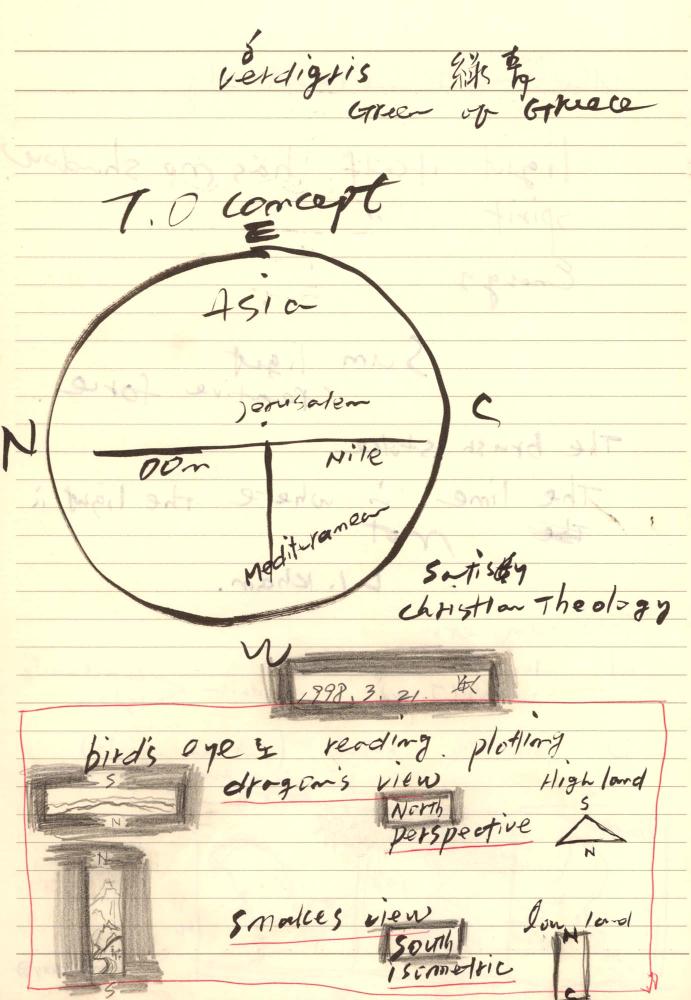 verdigris 綠青
Green of Greece
T.O concept
E
Asia
Jerusalem
N
S
DOn
Nile
Medituranean
Satisfy
Christian Theology
W
1998.3.21.
bird's eye & reading. plotting
S
N
dragon's view
North
perspective
High land
S
N
N
S
Snakes view
South
isometric
low land
N
S